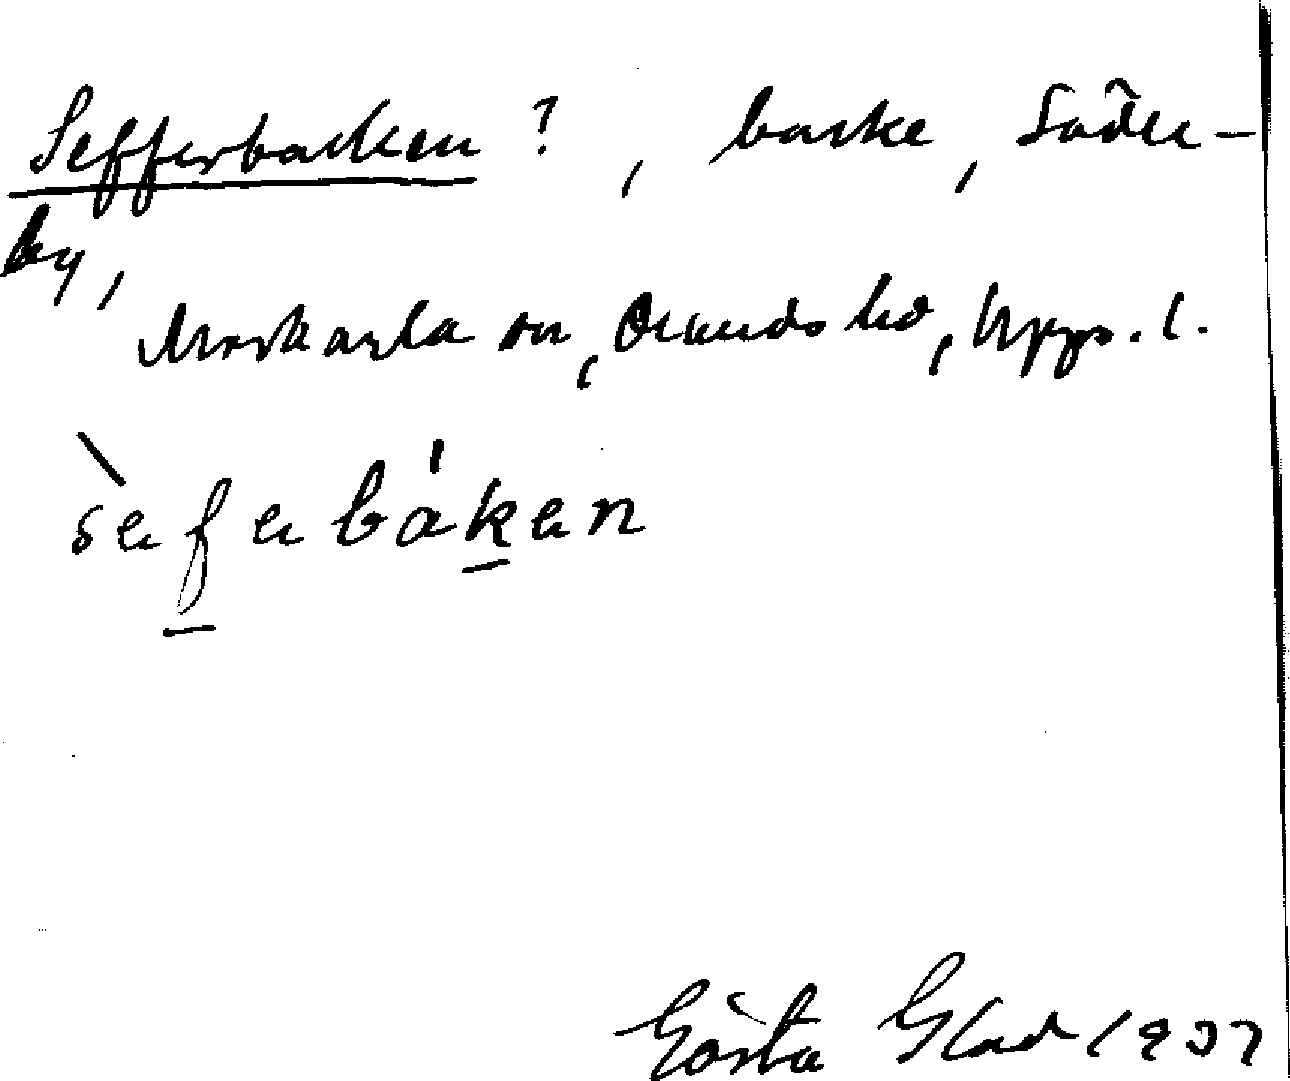 Sefferbacken ?, backe, Söder-
by,
Morkarla sn, Olands hd, Upps. l.
sefebaken
Gösta Glad 1937